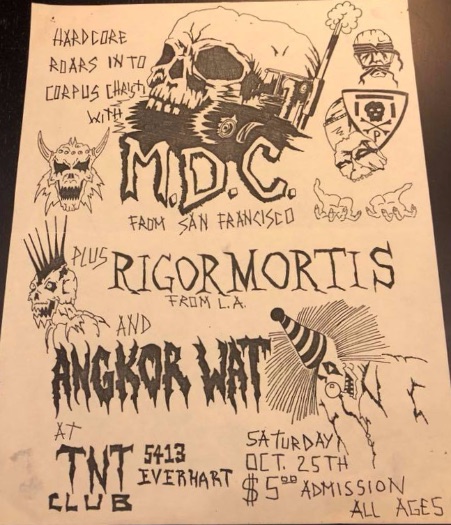 HARDCORE
ROARS INTO
CORPUS CHRISTI
WITH
M.D.C.
FROM SAN FRANCISCO
PLUS RIGOR MORTIS
FROM L.A.
AND
ANGKOR WAT
AT
TNT
CLUB
5413
EVERHART
SATURDAY
OCT. 25TH
$5.00 ADMISSION
ALL AGES